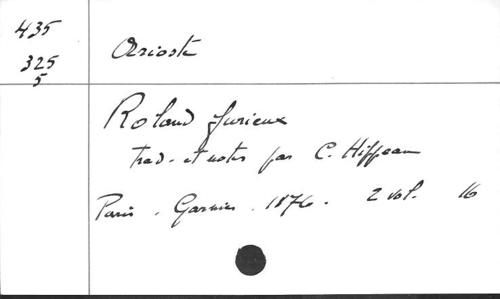 435
325
5
Arioste
Roland furieux
trad. et notes par C. Hippeau
Paris. Garnier. 1876. 2 vol. 16